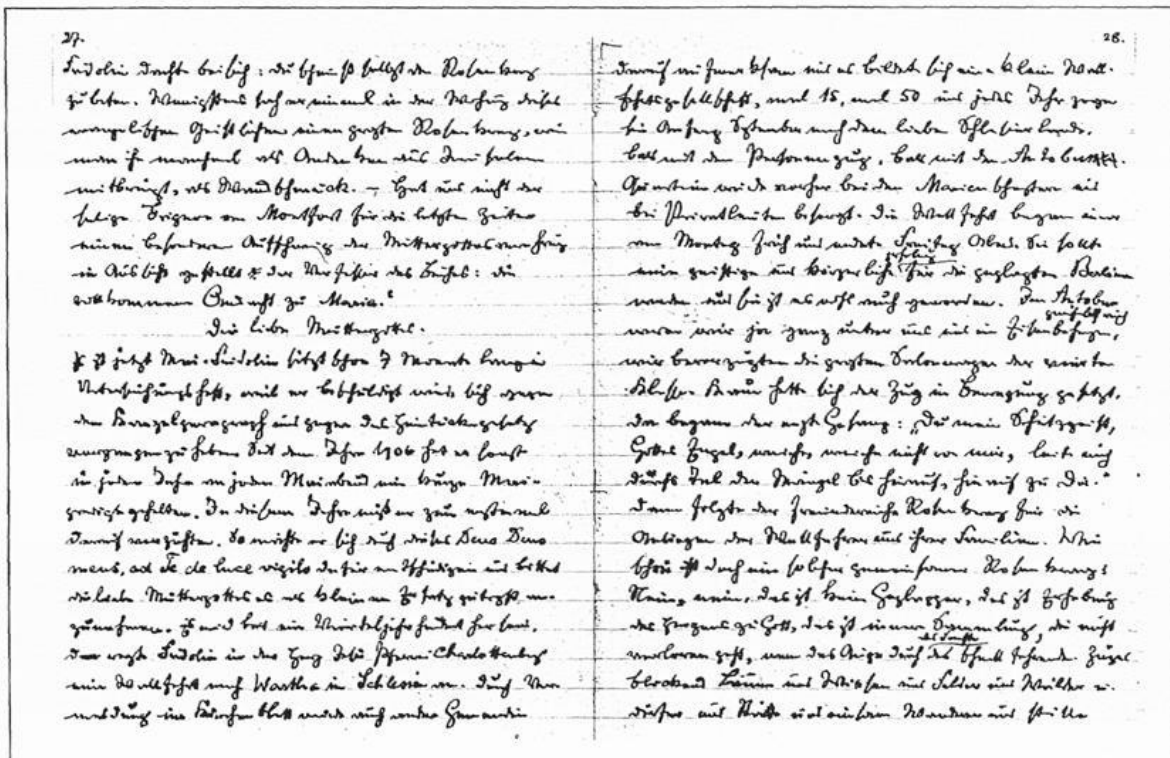 27.
Fridolin dachte bei sich: du scheinst selbst den Rosenkranz
zu beten. Wenigstens sah er einmal in der Wohnung dieses
evangelischen Geistlichen einen großen Rosenkranz, wie
man ihn manchmal als Andenken aus Jerusalem
mitbringt, als Wandschmuck. – Hat uns nicht der
selige Grignon von Montfort für die letzten Zeiten
einen besonderen Aufschwung der Muttergottesverehrung
in Aussicht gestellt der Verfasser des Buches: die
vollkommene Andacht zu Maria.
Die liebe Muttergottes.
Es ist jetzt Mai. Fridolin sitzt schon 7 Monate lang in
Untersuchungshaft, weil er beschuldigt wird, sich gegen
den Kanzelparagraph und gegen das Heimtückegesetz
vergangen zu haben. Seit dem Jahre 1906 hat er sonst
in jedem Jahre an jedem Maiabend eine kurze Mai-
predigt gehalten. In diesem Jahre muß er zum erstenmal
darauf verzichten. So möchte er sich durch dieses Deus Deus
meus, ad Te de luce vigilo dafür entschädigen und bittet
die liebe Muttergottes es als kleinen Ersatz gütigst an-
zunehmen. Es wird bald ein Vierteljahrhundert her sein,
da regte Fridolin in der Herz Jesu Pfarrei Charlottenburg
eine Wallfahrt nach Wartha in Schlesien an. Durch Ver-
meldung im Kirchenblatt wurde auch andere Gemeinden
28.
darauf aufmerksam und es bildete sich eine kleine Wall-
fahrtsgesellschaft, mal 15, mal 50 und jedes Jahr gegen
Anfang September nach dem lieben Schlesierlande,
bald mit dem Personenzug, bald mit dem Autobus.
Quartier wurde vorher bei den Marienschwestern und
bei Privatleuten besorgt. Die Wallfahrt begann immer
am Montag früh und endete Freitag Abend. Sie sollte
eine geistige und körperliche Erholung für die geplagten Berliner
werden und sie ist es wohl auch geworden. Im Autobus
waren wir ja ganz unter uns und im Eisenbahnzug,
wir bevorzugten die großen Salonwagen der vierten
Klasse. Kaum hatte sich der Zug in Bewegung gesetzt,
da begann der erste Gesang: „Du mein Schutzgeist,
Gottes Engel, weiche, weiche nicht von mir, leite mich
durchs Tal der Mängel bis hinauf, hinauf zu Dir."
Dann folgte der freudenreiche Rosenkranz für die
Anliegen der Wallfahrer und ihrer Familien. Wie
schön ist doch ein solcher gemeinsamer Rosenkranz!
Nein, nein, das ist kein Geplapper, das ist Erhebung
des Herzens zu Gott, das ist innere Sammlung, die nicht
verloren geht, wenn das Auge durch das Fenster des schnell fahrenden Zuges
blickend Bäume und Wiesen und Felder und Wälder u.
Dörfer und Städte und einsame Wanderer und stille